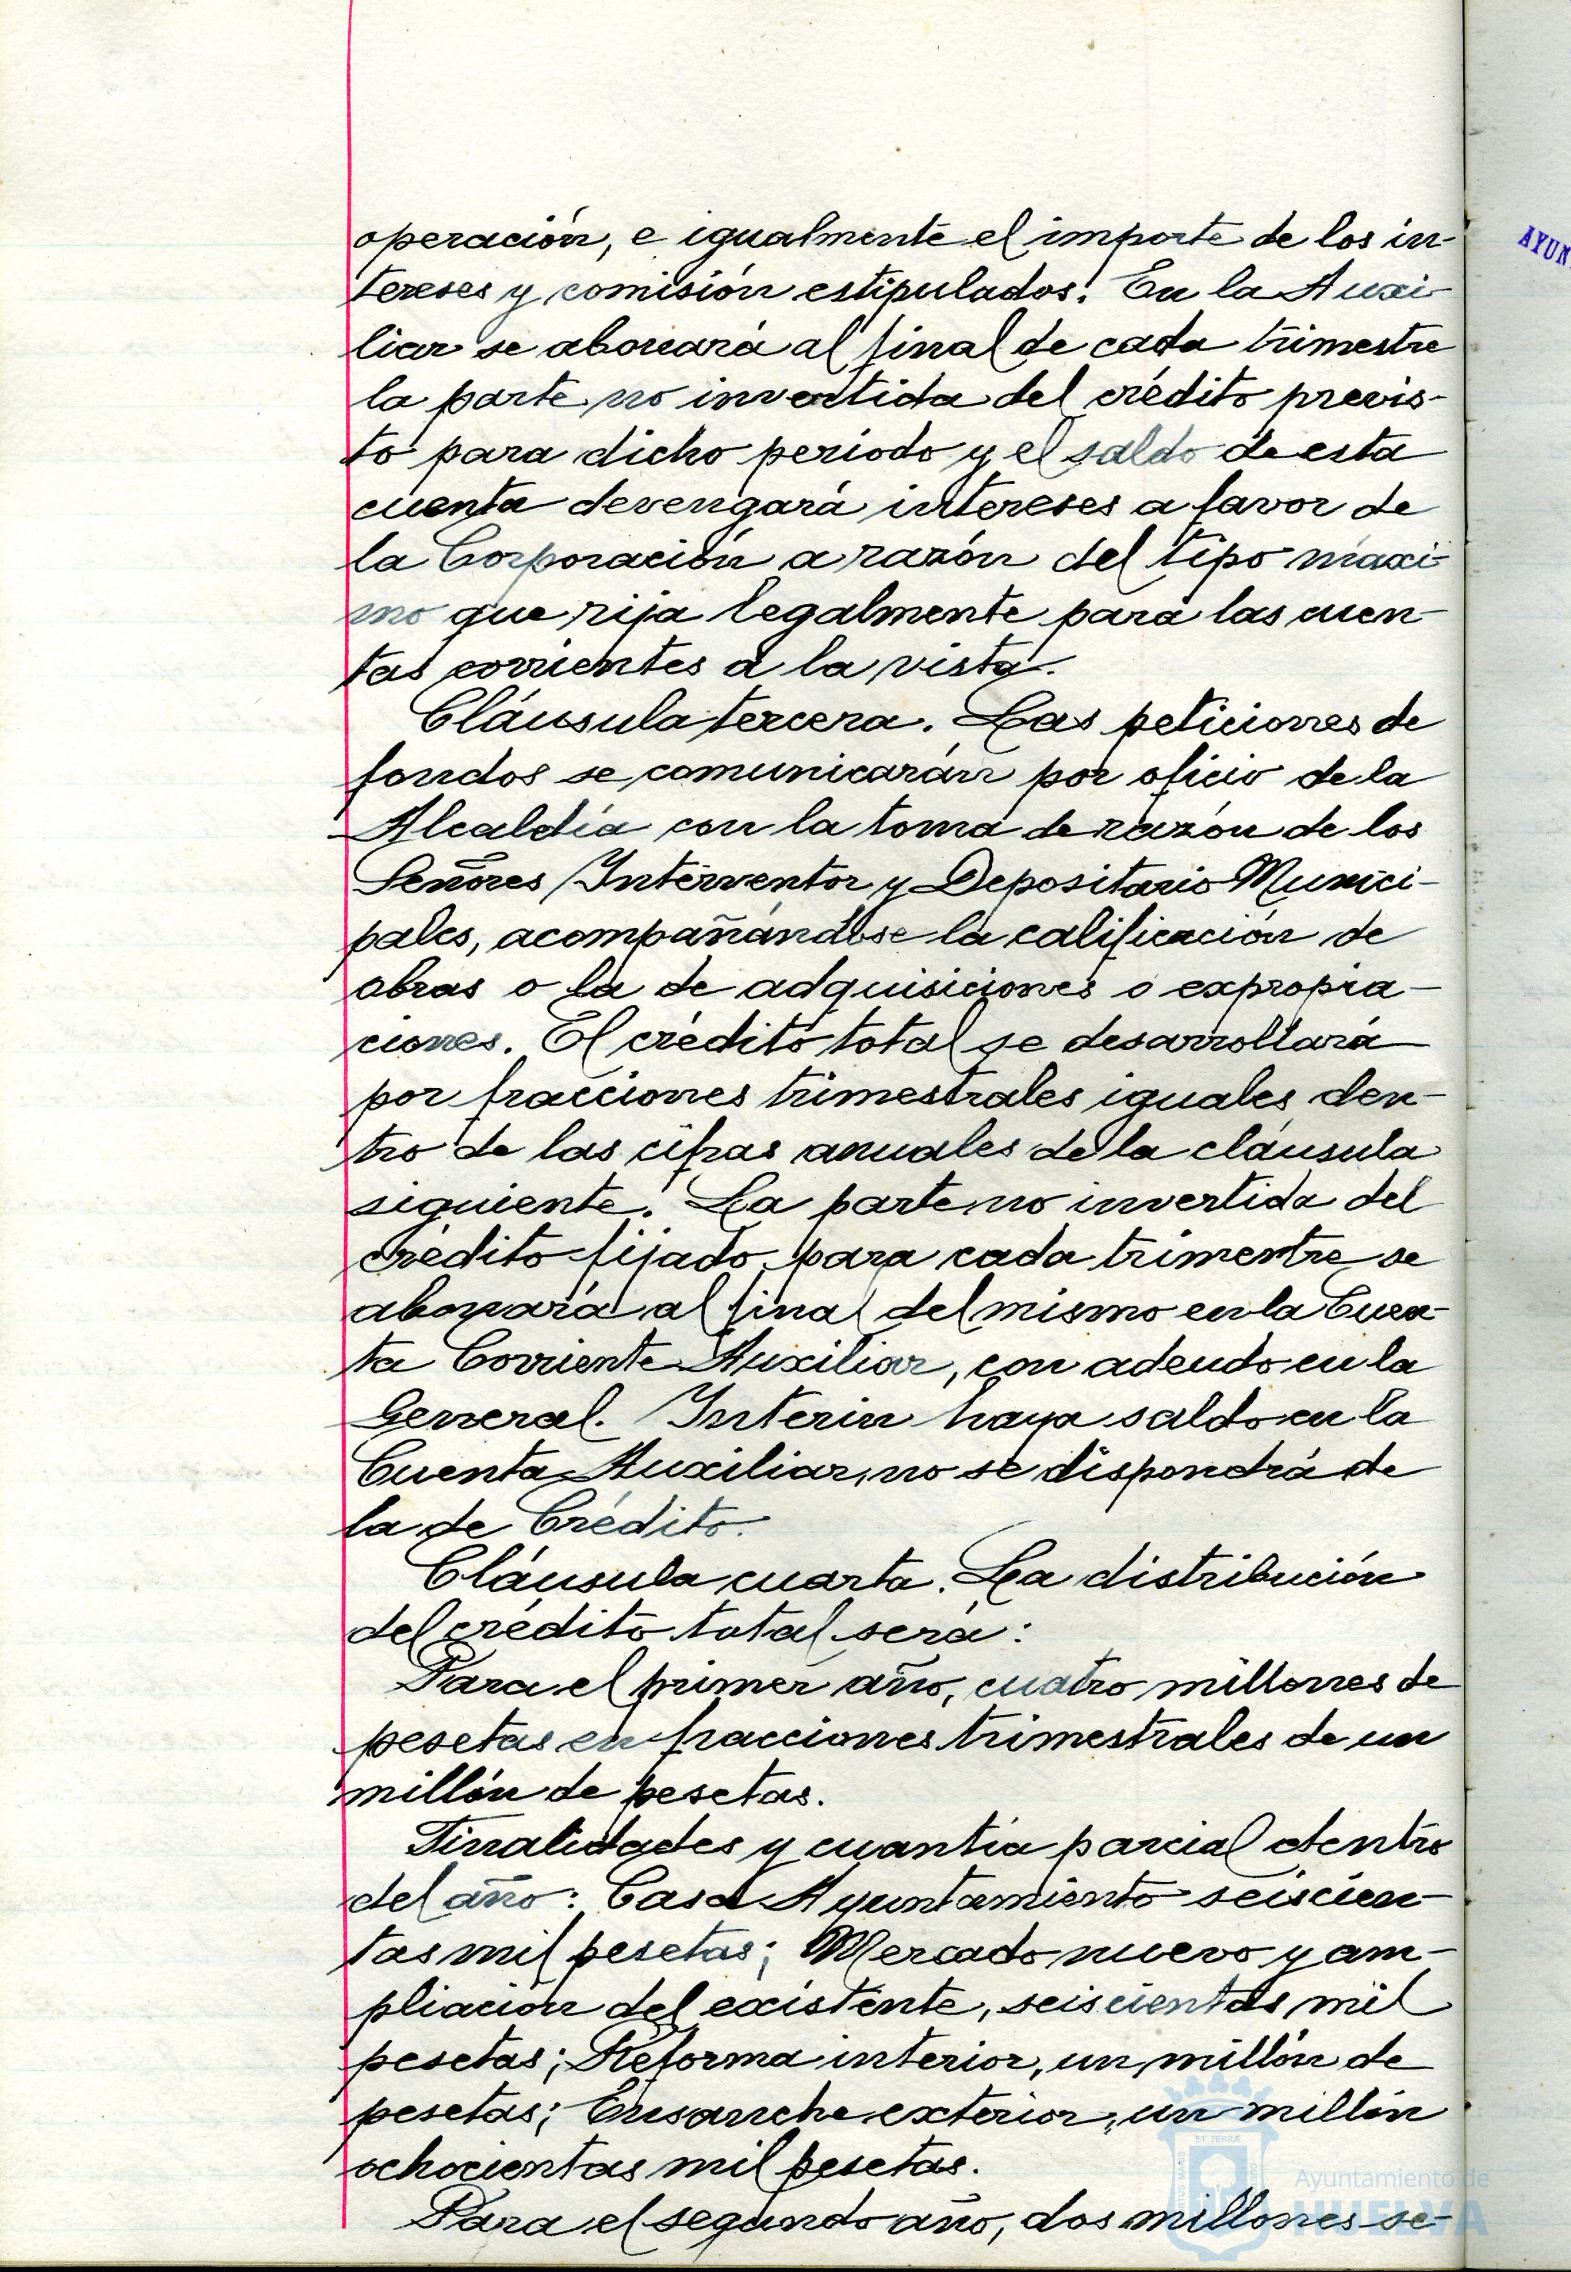 operación, e igualmente el importe de los in-
tereses y comisión estipulados. En la Auxi-
liar se abonará al final de cada trimestre
la parte no invertida del crédito previs-
to para dicho periodo y el saldo de esta
cuenta devengará intereses a favor de
la Corporación a razón del tipo máxi-
mo que rija legalmente para las cuen-
tas corrientes a la vista.
Cláusula tercera. Las peticiones de
fondos se comunicarán por oficio de la
Alcaldía con la toma de razón de los
Señores Interventor y Depositario Munici-
pales, acompañándose la calificación de
obras o la de adquisiciones o expropia-
ciones. El crédito total se desarrollará
por fracciones trimestrales iguales den-
tro de las cifras anuales de la cláusula
siguiente. La parte no invertida del
crédito fijado para cada trimestre se
abonará al final del mismo en la Cuen-
ta Corriente Auxiliar, con adeudo en la
General. Interin haya saldo en la
Cuenta Auxiliar, no se dispondrá de
la de Crédito.
Cláusula cuarta. La distribución
del crédito total será:
Para el primer año, cuatro millones de
pesetas en fracciones trimestrales de un
millón de pesetas.
Finalidades y cuantía parcial dentro
del año: Casa Ayuntamiento seiscien-
tas mil pesetas; Mercado nuevo y am-
pliación del existente, seiscientas mil
pesetas; Reforma interior, un millón de
pesetas; Ensanche exterior, un millón
ochocientas mil pesetas.
Para el segundo año, dos millones se-
AYUN
ET TERRÆ
Ayuntamiento de
HUELVA